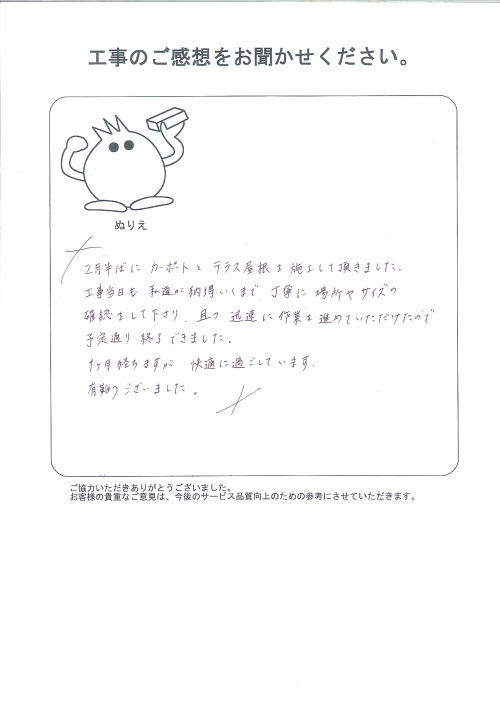 工事のご感想をお聞かせください。
ぬりえ
2月半ばに カーポートと テラス屋根を 施工して頂きました。
工事当日も 私達が納得いくまで 丁寧に 場所やサイズの
確認をして下さり、且つ 迅速に作業を進めていただけたので
予定通り 終了できました。
1ヶ月経ちますが 快適に過ごしています。
有難うございました。
ご協力いただきありがとうございました。
お客様の貴重なご意見は、今後のサービス品質向上のための参考にさせていただきます。